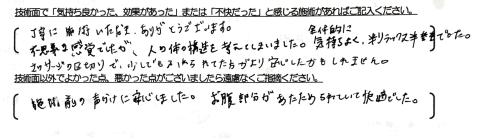 技術面で「気持ち良かった、効果があった」または「不快だった」と感じる施術があればご記入ください。
丁寧に施術いただき、ありがとうございます。
全体的に
不思議な感覚でしたが、人の体の構造を考えてしまいました。気持ちよく、半リラックス半緊張でした。
マッサージの区切りで、少しでも声かけられてた方がより安心したかもしれません。
技術面以外でよかった点、悪かった点がございましたら遠慮なくご指摘ください。
施術前の声かけに安心しました。お腹部分があたためられていて快適でした。